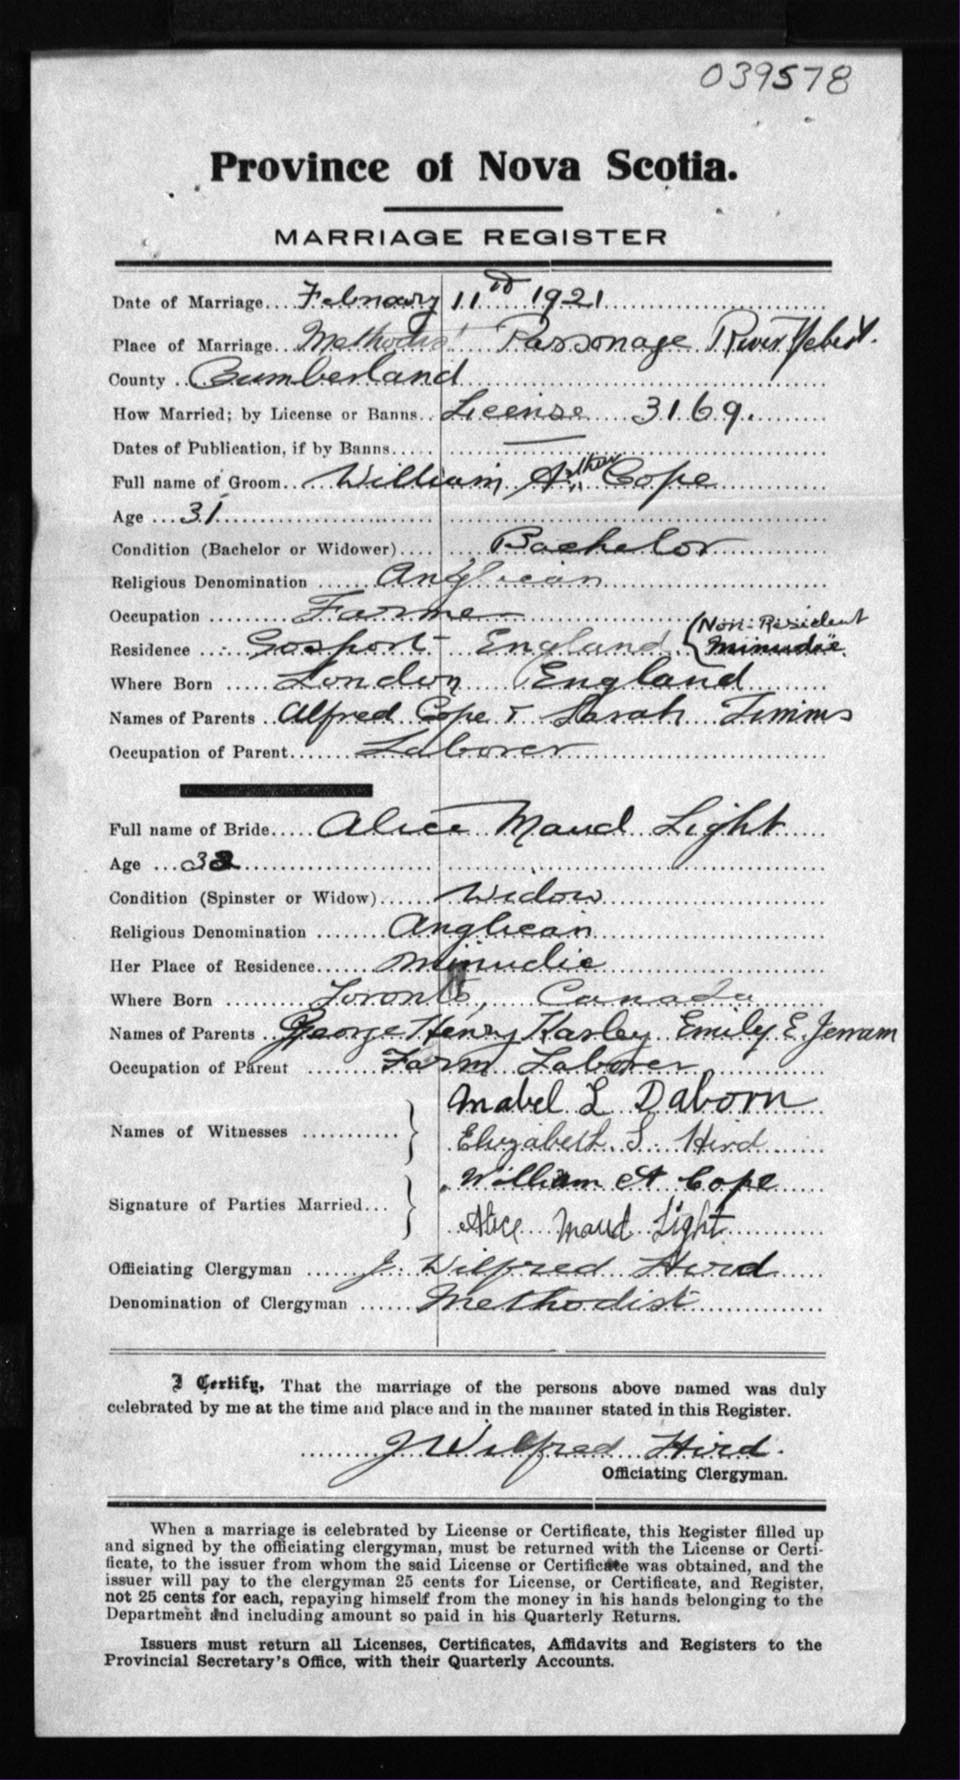 039578
Province of Nova Scotia.
MARRIAGE REGISTER
Date of Marriage....February 11th 1921
Place of Marriage..Methodist Parsonage River Hebert.
County ..Cumberland
How Married; by License or Banns..License 3169.
Dates of Publication, if by Banns.....—
Full name of Groom...William Arthur Cope
Age ...31
Condition (Bachelor or Widower)....Bachelor
Religious Denomination ......Anglican
Occupation ........Farmer
Residence .....Gosport England (Non-Resident Minudie.
Where Born .....London England
Names of Parents ..Alfred Cope & Sarah Timms
Occupation of Parent......Laborer
Full name of Bride.....Alice Maud Light
Age ...
Condition (Spinster or Widow)......Widow
Religious Denomination ........Anglican
Her Place of Residence......Minudie
Where Born .........Toronto, Canada
Names of Parents ..George Henry Karley Emily E. Jerram
Occupation of Parent ........Farm Laborer
Names of Witnesses ........... } Mabel L Daborn
Elizabeth S. Hird
Signature of Parties Married... } William A Cope
Alice Maud Light
Officiating Clergyman ......J. Wilfred Hird
Denomination of Clergyman ......Methodist
I Certify, That the marriage of the persons above named was duly
celebrated by me at the time and place and in the manner stated in this Register.
J Wilfred Hird.
Officiating Clergyman.
When a marriage is celebrated by License or Certificate, this Register filled up
and signed by the officiating clergyman, must be returned with the License or Certi-
ficate, to the issuer from whom the said License or Certificate was obtained, and the
issuer will pay to the clergyman 25 cents for License, or Certificate, and Register,
not 25 cents for each, repaying himself from the money in his hands belonging to the
Department and including amount so paid in his Quarterly Returns.
Issuers must return all Licenses, Certificates, Affidavits and Registers to the
Provincial Secretary's Office, with their Quarterly Accounts.